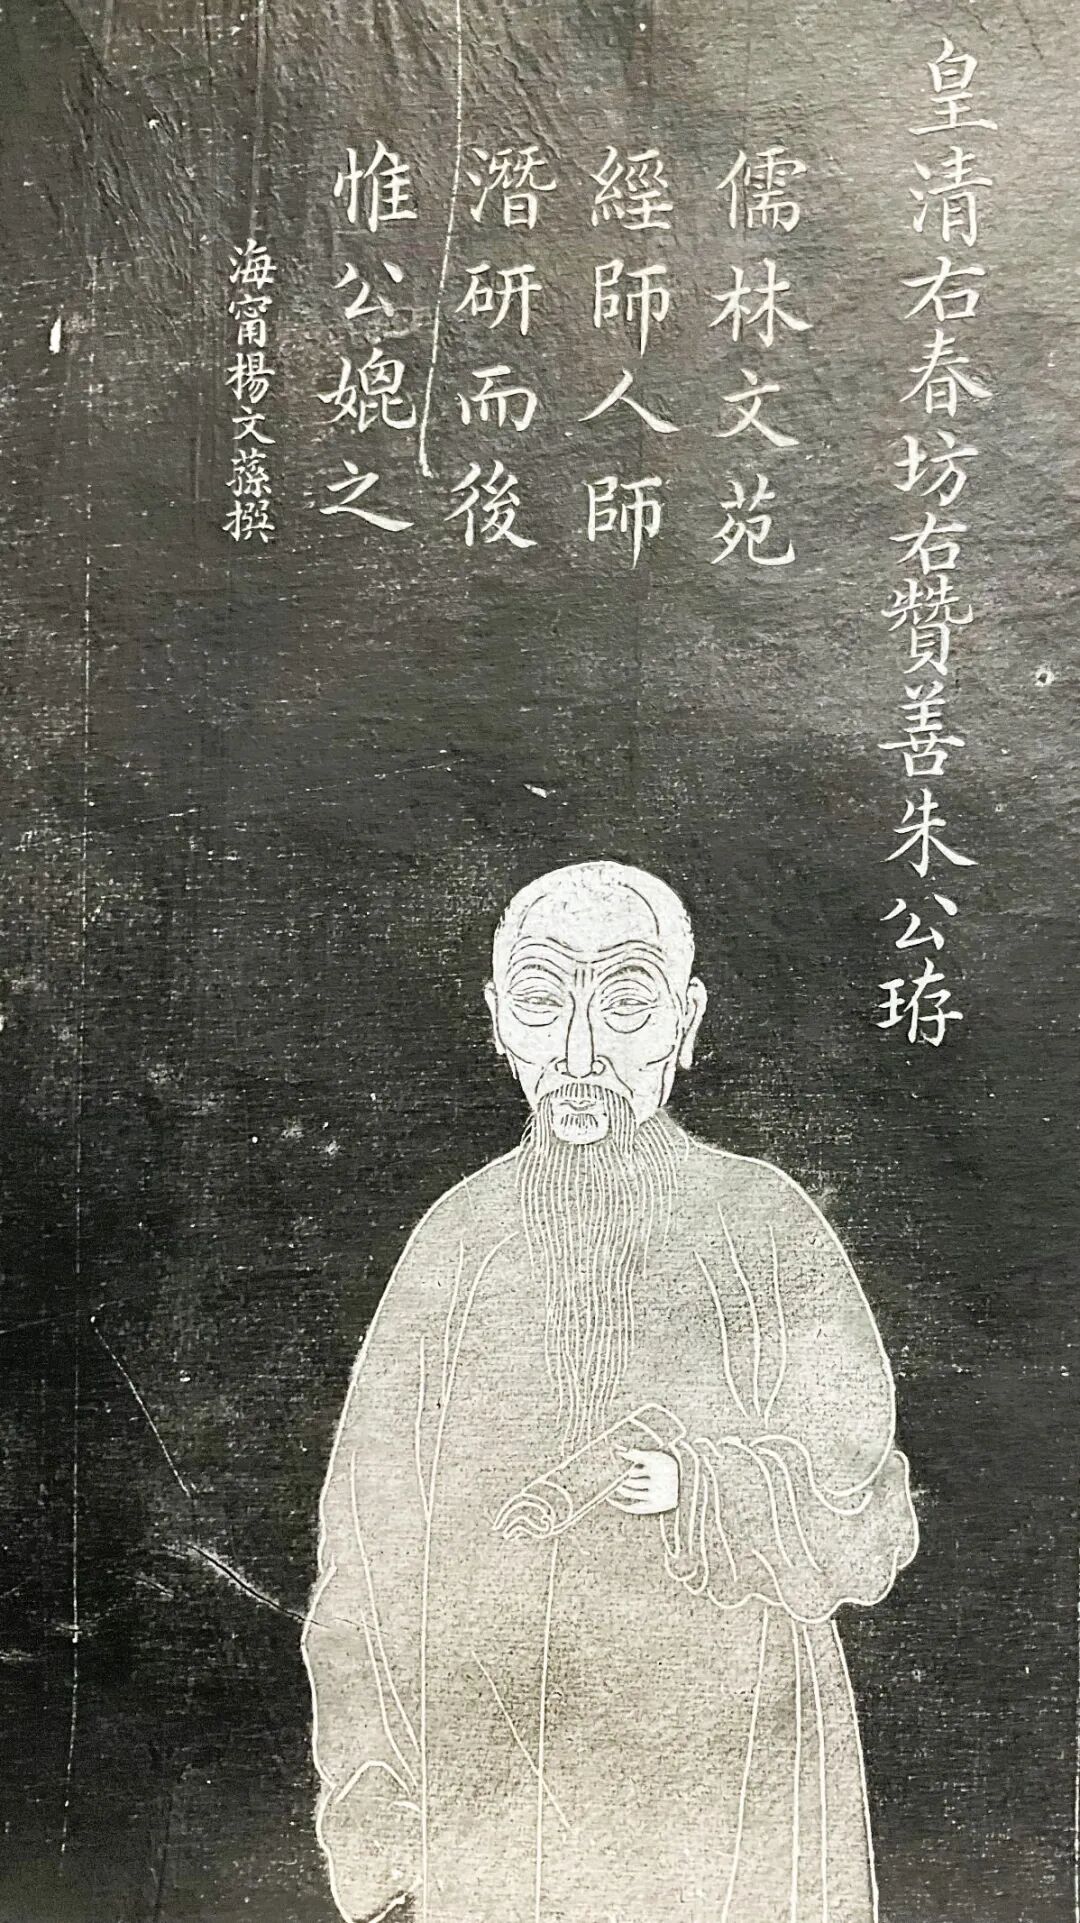 皇清右春坊右贊善朱公珔
儒林文苑
經師人師
潛研而後
惟公媲之
海甯楊文蓀撰